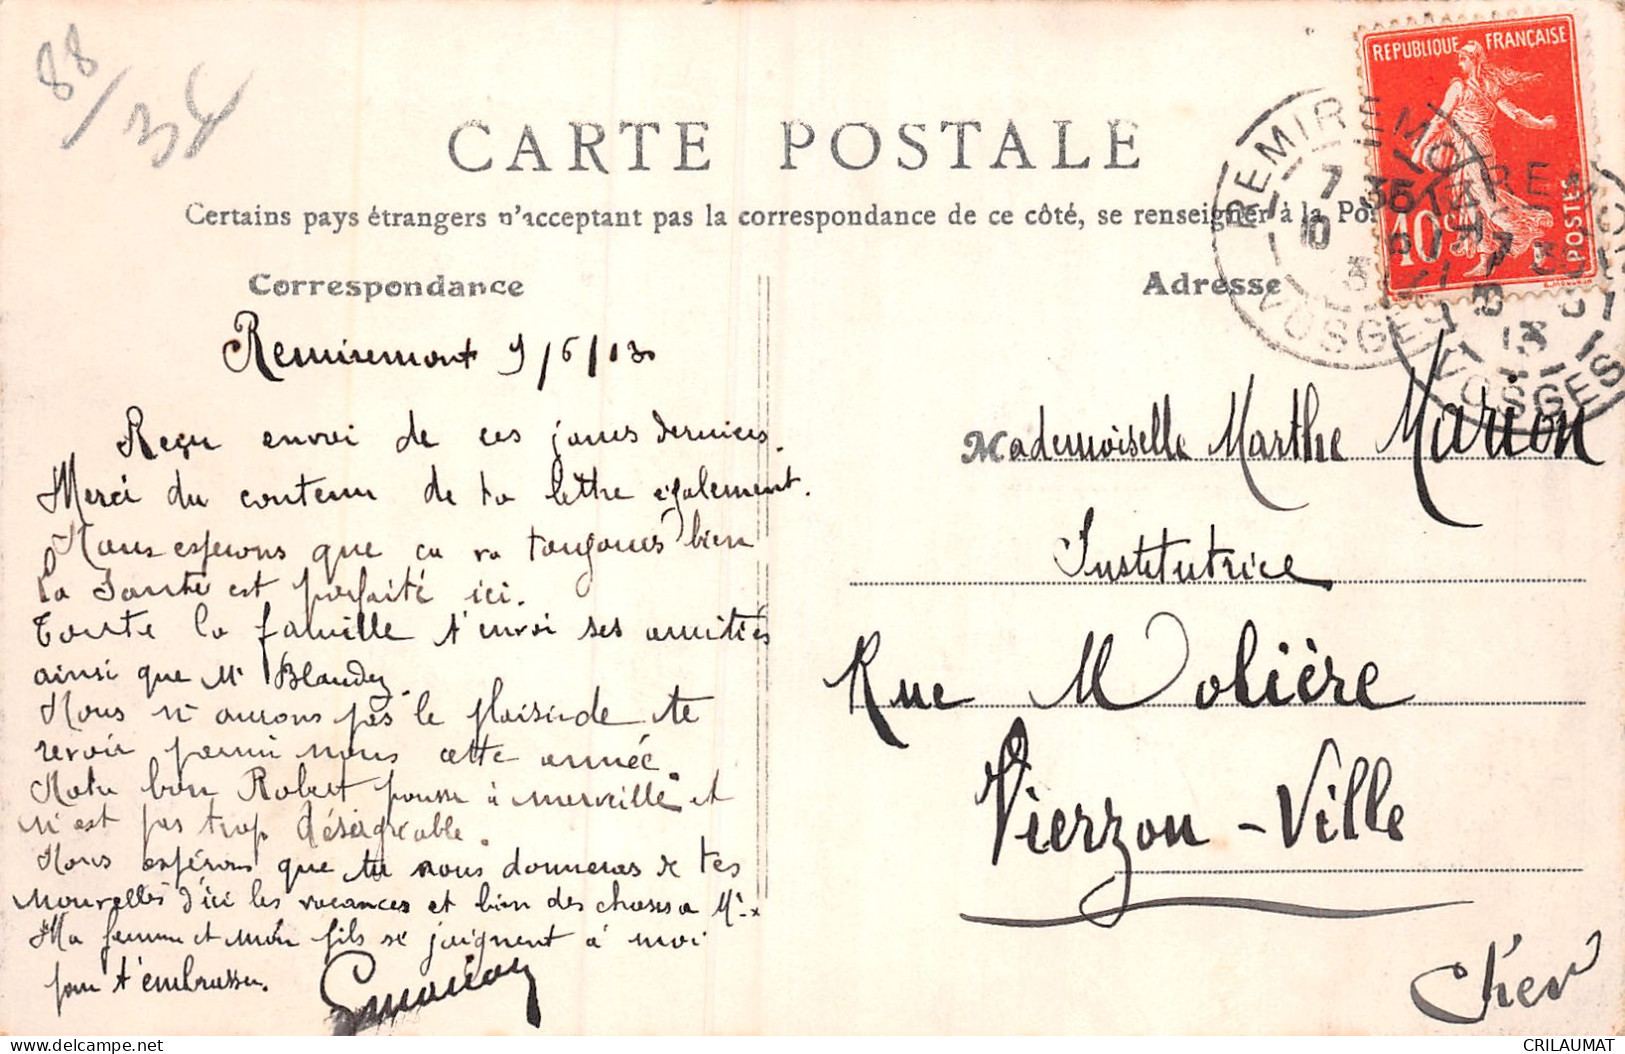 88/34
CARTE POSTALE
Certains pays étrangers n'acceptent pas la correspondance de ce côté, se renseigner à la Pos
Correspondance
Remiremont 9/6/13
Reçu envoi de ces jours derniers.
Merci du contenu de ta lettre également.
Nous esperons que ca va toujours bien
La Santé est parfaite ici.
Toute la famille t'envoi ses amitiés
ainsi que Mr Blaudez.
Nous n'aurons pas le plaisir de te
revoir parmi nous cette année.
Notre bon Robert pousse à merveille et
n'est pas trop désagréable.
Nous espérons que tu nous donneras de tes
nouvelles d'ici les vacances et bien des choses a Mr x
Ma femme et mon fils se joignent à moi
pour t'embrasser.
Adresse
REPUBLIQUE FRANÇAISE
10c
POSTES
REMIREMONT
7 35
10 6
13
VOSGES
Mademoiselle Marthe Marion
Institutrice
Rue Molière
Vierzon-Ville
Cher
delcampe.net
CRILAUMAT